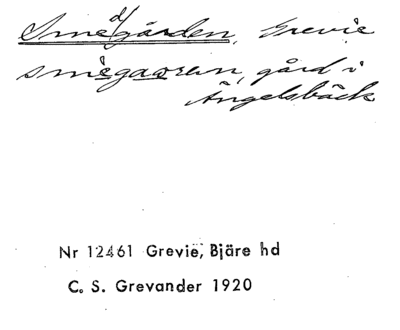 Smedgården, Grevie
smegaaren, gård i
Ängelsbäck
Nr 12461 Grevie, Bjäre hd
C. S. Grevander 1920